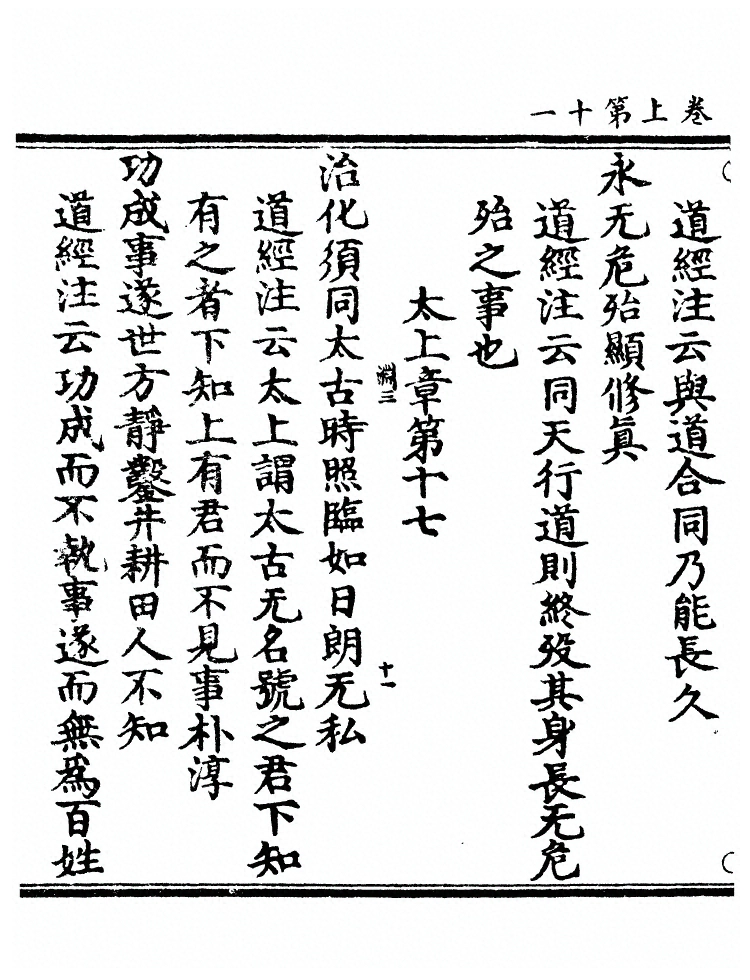 卷上第十一
道經注云與道合同乃能長久
永无危殆顯修眞
道經注云同天行道則終殁其身長无危
殆之事也
太上章第十七
淵三
十一
治化須同太古時照臨如日朗无私
道經注云太上謂太古无名號之君下知
有之者下知上有君而不見事朴淳
功成事遂世方靜鑿井耕田人不知
道經注云功成而不執事遂而無爲百姓